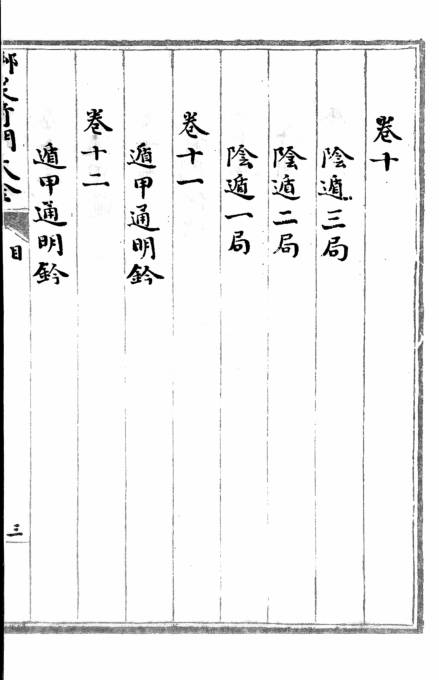 卷十
陰遁三局
陰遁二局
陰遁一局
卷十一
遁甲通明鈐
卷十二
遁甲通明鈐
奇門大全
目
三